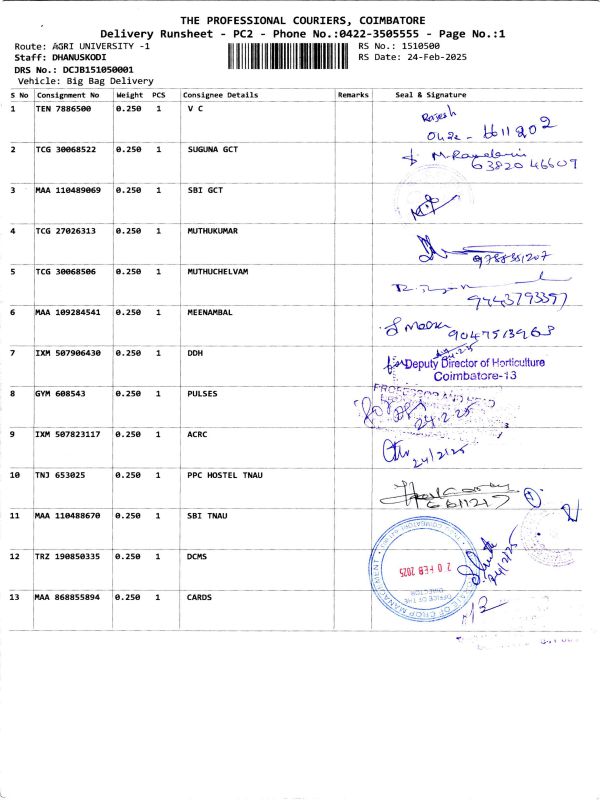 THE PROFESSIONAL COURIERS, COIMBATORE
Delivery Runsheet - PC2 - Phone No.:0422-3505555 - Page No.:1
Route: AGRI UNIVERSITY -1
RS No.: 1510500
Staff: DHANUSKODI
RS Date: 24-Feb-2025
DRS No.: DCJB151050001
Vehicle: Big Bag Delivery
S No Consignment No Weight PCS Consignee Details Remarks Seal & Signature
1 TEN 7886500 0.250 1 V C Rajesh
0422 - 6611202
2 TCG 30068522 0.250 1 SUGUNA GCT
63820 46609
3 MAA 110489069 0.250 1 SBI GCT
4 TCG 27026313 0.250 1 MUTHUKUMAR
5 TCG 30068506 0.250 1 MUTHUCHELVAM
9443793397
6 MAA 109284541 0.250 1 MEENAMBAL
9047513963
7 IXM 507906430 0.250 1 DDH
for Deputy Director of Horticulture
Coimbatore-13
8 GYM 608543 0.250 1 PULSES
PROFESSOR AND HEAD
24.2.25
9 IXM 507823117 0.250 1 ACRC
24/2/25
10 TNJ 653025 0.250 1 PPC HOSTEL TNAU
6611217
11 MAA 110488670 0.250 1 SBI TNAU
12 TRZ 190850335 0.250 1 DCMS
20 FEB 2025
OFFICE OF THE
DIRECTOR
24/2/25
13 MAA 868855894 0.250 1 CARDS